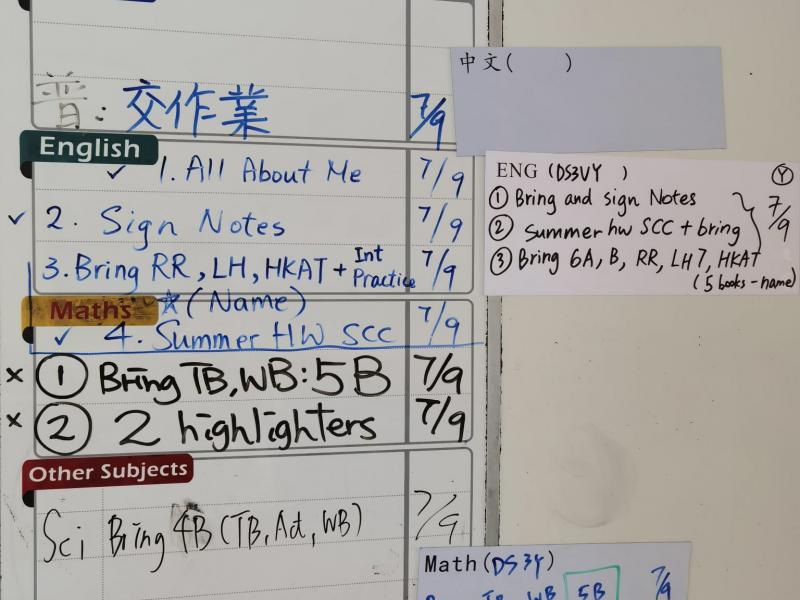 普: 交作業 7/9
English
✓ 1. All About Me 7/9
✓ 2. Sign Notes 7/9
3. Bring RR, LH, HKAT + Int Practice 7/9
Maths ☆(Name)
✓ 4. Summer HW SCC 7/9
× ① Bring TB, WB: 5B 7/9
× ② 2 highlighters 7/9
Other Subjects
Sci Bring 4B (TB, Act, WB) 7/9
中文( )
ENG (DS3VY ) Ⓨ
① Bring and sign Notes 7/9
② Summer hw SCC + bring
③ Bring 6A, B, RR, LH7, HKAT
(5 books - name)
Math (DS 3Y)
TB WB 5B 7/9